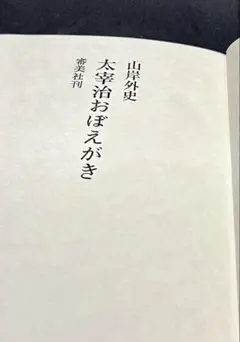 山岸外史
太宰治おぼえがき
審美社刊